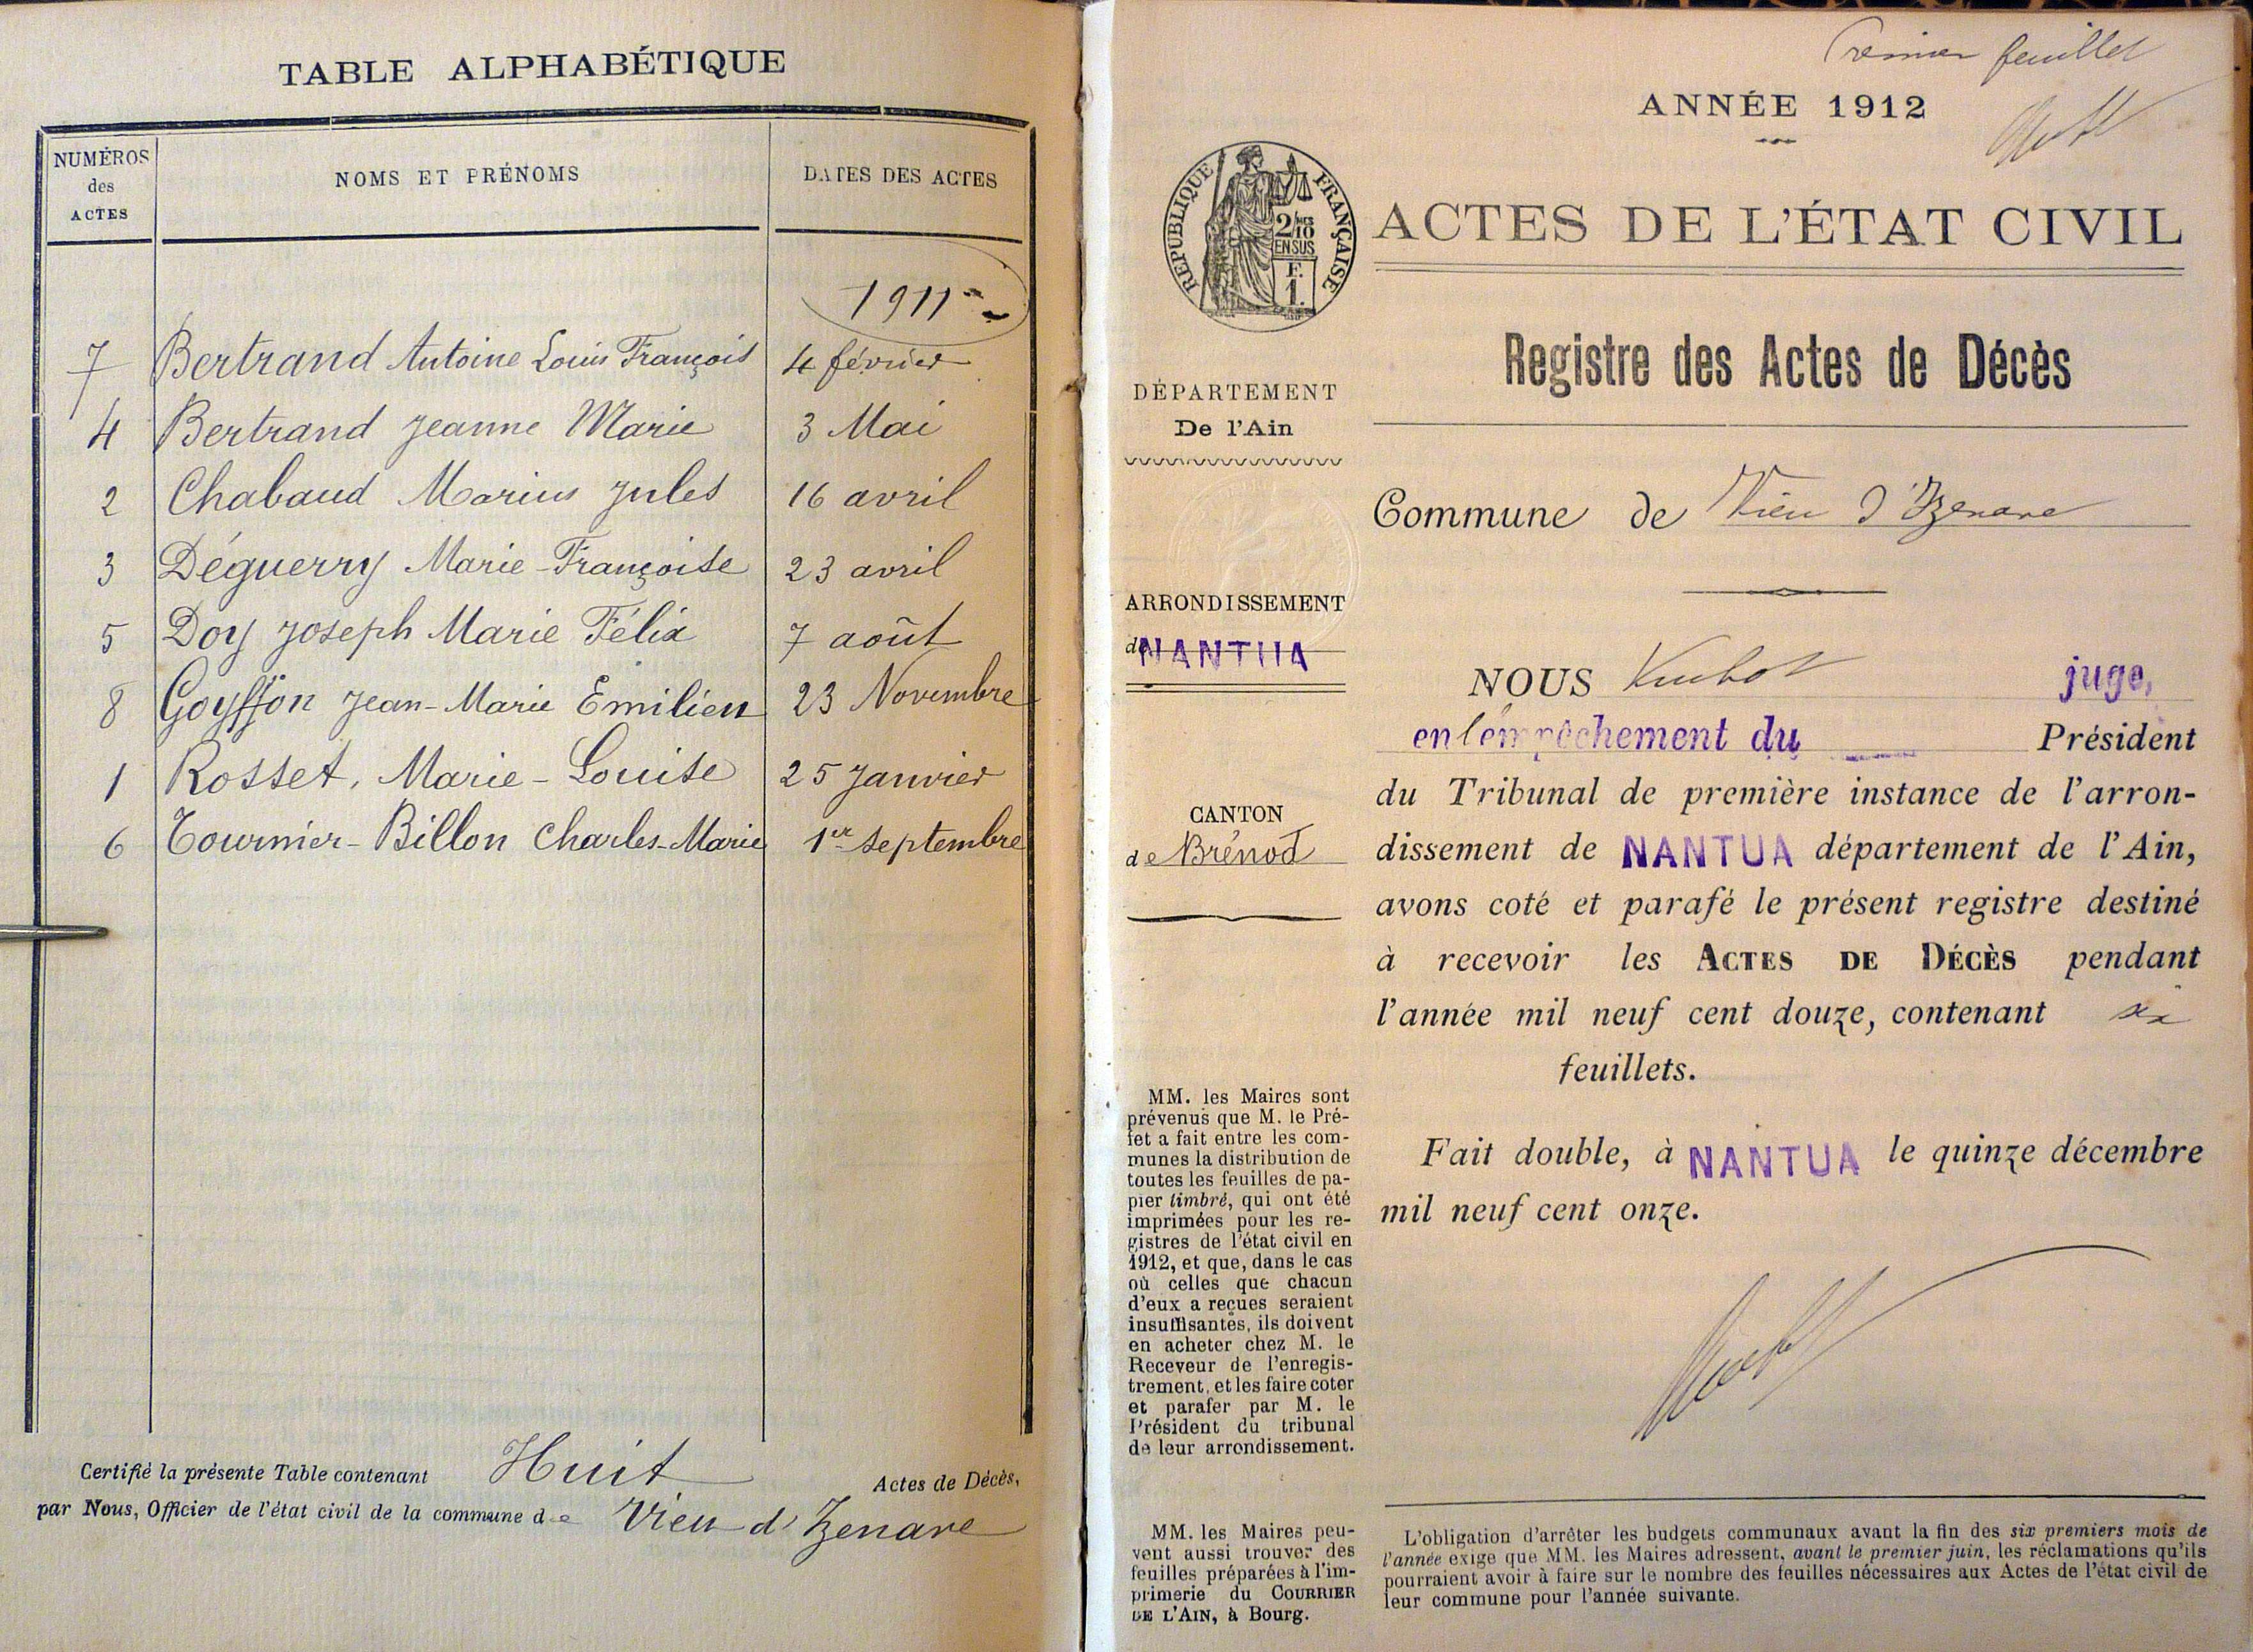 TABLE ALPHABÉTIQUE
NUMÉROS des ACTES
NOMS ET PRÉNOMS
DATES DES ACTES
1911
7 Bertrand Antoine Louis François 4 février
4 Bertrand Jeanne Marie 3 Mai
2 Chabaud Marius Jules 16 avril
3 Déguerry Marie-Françoise 23 avril
5 Doy Joseph Marie Félix 7 août
8 Goyffon Jean-Marie Emilien 23 Novembre
1 Rosset, Marie-Louise 25 Janvier
6 Tournier-Billon Charles-Marie 1er septembre
Certifié la présente Table contenant Huit Actes de Décès,
par Nous, Officier de l'état civil de la commune de Vieu d'Izenave
Premier feuillet
ANNÉE 1912
RÉPUBLIQUE FRANÇAISE
2/10 EN SUS
F.
1.
ACTES DE L'ÉTAT CIVIL
Registre des Actes de Décès
DÉPARTEMENT
De l'Ain
Commune de Vieu d'Izenave
ARRONDISSEMENT
de NANTUA
CANTON
de Brénod
NOUS juge,
en l'empêchement du Président
du Tribunal de première instance de l'arron-
dissement de NANTUA département de l'Ain,
avons coté et parafé le présent registre destiné
à recevoir les ACTES DE DÉCÈS pendant
l'année mil neuf cent douze, contenant six
feuillets.
Fait double, à NANTUA le quinze décembre
mil neuf cent onze.
MM. les Maires sont
prévenus que M. le Pré-
fet a fait entre les com-
munes la distribution de
toutes les feuilles de pa-
pier timbré, qui ont été
imprimées pour les re-
gistres de l'état civil en
1912, et que, dans le cas
où celles que chacun
d'eux a reçues seraient
insuffisantes, ils doivent
en acheter chez M. le
Receveur de l'enregis-
trement, et les faire coter
et parafer par M. le
Président du tribunal
de leur arrondissement.
MM. les Maires peu-
vent aussi trouver des
feuilles préparées à l'im-
primerie du COURRIER
DE L'AIN, à Bourg.
L'obligation d'arrêter les budgets communaux avant la fin des six premiers mois de
l'année exige que MM. les Maires adressent, avant le premier juin, les réclamations qu'ils
pourraient avoir à faire sur le nombre des feuilles nécessaires aux Actes de l'état civil de
leur commune pour l'année suivante.